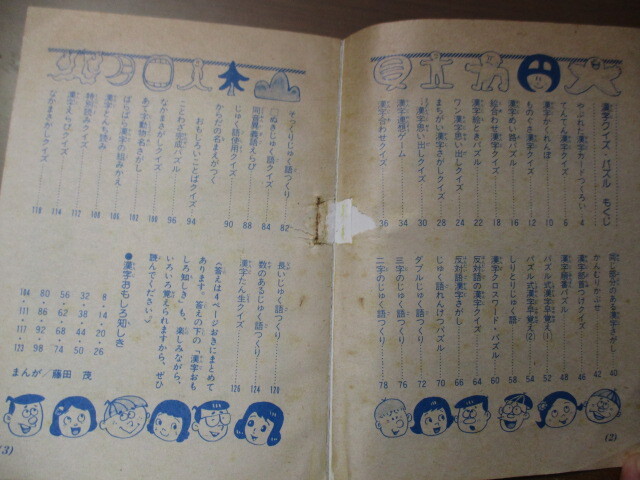 漢字クイズ・パズル もくじ
やぶれた漢字カードつくろい 4
てんてん漢字クイズ 6
漢字かくれんぼ 10
ものぐさ漢字クイズ 12
漢字めいろパズル 16
絵合わせ漢字クイズ 18
漢字絵ときパズル 22
ワン漢字思い出しクイズ 24
まちがい漢字さがしクイズ 28
漢字思い出しクイズ 30
漢字連想ゲーム 34
漢字合わせクイズ 36
同じ部分のある漢字さがし 40
かんむりかぶせ 42
漢字部首つけクイズ 46
漢字輪番パズル 48
パズル式漢字早覚え(1) 52
パズル式漢字早覚え(2) 54
しりとりじゅく語 58
漢字クロスワード・パズル 60
反対語の漢字クイズ 64
反対語漢字さがし 66
じゅく語れんけつパズル 70
ダブルじゅく語つくり 72
三字のじゅく語つくり 76
二字のじゅく語つくり 78
(2)
そっくりじゅく語つくり 82
穴ぬきじゅく語クイズ 84
同音異義語えらび 88
じゅく語使用クイズ 90
からだの名まえがつく
おもしろいことばクイズ 94
ことわざ完成パズル 96
なかまさがしクイズ 100
あて字動物名さがし 102
ばらばら漢字の組みかえ 106
漢字とんち読み 108
特別読みクイズ 112
漢字えらびクイズ 114
なかまさがしクイズ 118
長いじゅく語つくり 120
数のあるじゅく語つくり 124
漢字たん生クイズ 126
(答えは4ページおきにまとめて
あります。答えの下の「漢字おも
しろ知しき」も、楽しろながら、
いろいろ覚えられますから、ぜひ
読んでください。)
●漢字おもしろ知しき
8・14・20・26
32・38・44・50
56・62・68・74
80・86・92・98
104・111・117・123
まんが/藤田 茂
(3)